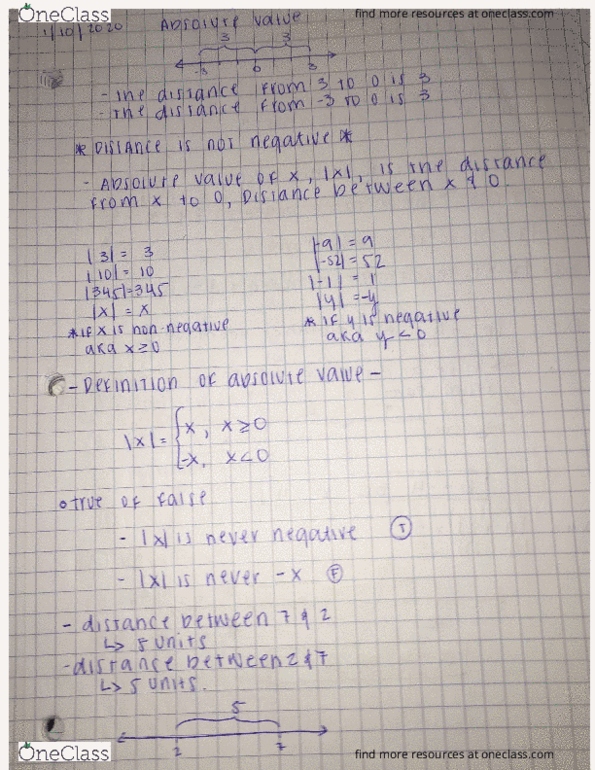 OneClass
find more resources at oneclass.com
1/10/2020 Absolute value
3 3
-3 0 3
- The distance from 3 to 0 is 3
- The distance from -3 to 0 is 3
* Distance is not negative *
- Absolute value of x, |x|, is the distance
from x to 0, Distance between x & 0
|3| = 3
|10| = 10
|345|=345
|x| = x
*if x is non-negative
aka x≥0
|-9| = 9
|-52| = 52
|-1| = 1
|y| = -y
* if y is negative
aka y<0
- Definition of absolute value -
|x| = { x, x≥0
-x, x<0
• True of False
- |x| is never negative (T)
- |x| is never -x (F)
- distance between 7 & 2
↳ 5 units
- distance between 2 & 7
↳ 5 units.
5
2 7
OneClass
find more resources at oneclass.com